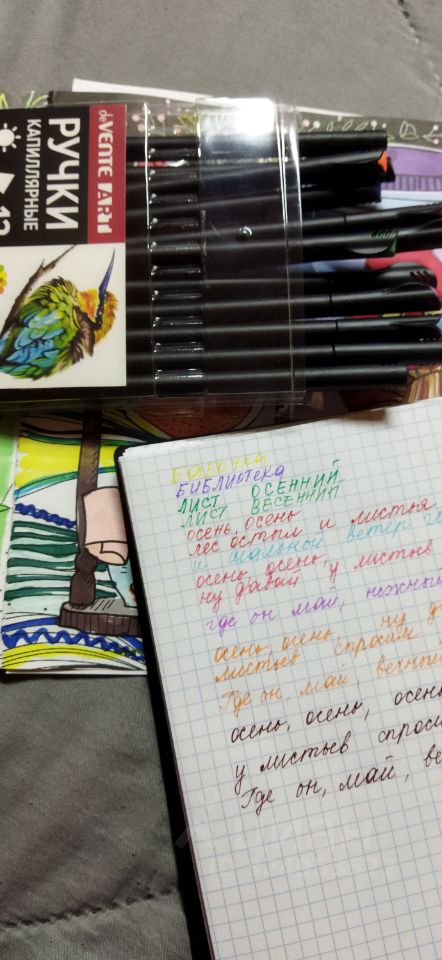 deVENTE ART
РУЧКИ
КАПИЛЛЯРНЫЕ
12
БАБОЧКА
БИБЛИОТЕКА
ЛИСТ ОСЕННИЙ
ЛИСТ ВЕСЕННИЙ
осень, осень
лес остыл и листья
и шальной ветер
осень, осень,
ну давай у листьев
где он май, нежный
осень, осень, ну
листьев спросим
Где он, май, вечный
осень, осень, осень
у листьев спросим
Где он, май,